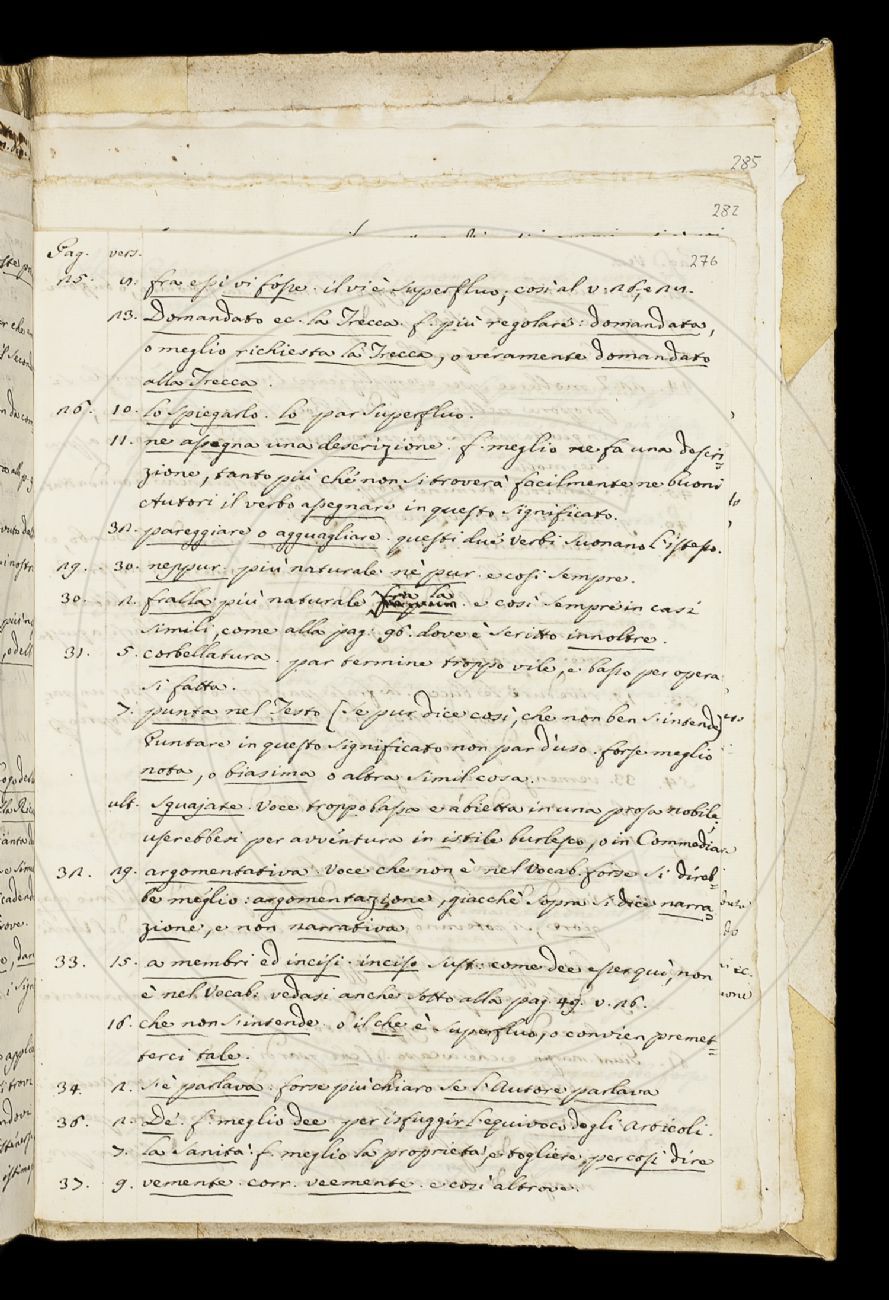 285
282
276
Pag. vers.
25. 9. fra essi vi fosse. il vi è superfluo, così al v. 26, e 29.
23. Domandato ec. la Trecca. f. più regolare: domandata,
o meglio richiesta la Trecca, o veramente domandato
alla Trecca.
26. 10. lo spiegarlo. lo par superfluo.
11. ne assegna una descrizione. f. meglio ne fa una descri=
zione, tanto più ché non si troverà facilmente ne buoni
Autori il verbo assegnare in questo significato.
32. pareggiare o agguagliare. questi due verbi suonano l'istesso.
29. 30. neppur. più naturale nè pur. e così sempre.
30. 2. fralla. più naturale fra la. e così sempre in casi
simili, come alla pag. 96. dove è scritto innoltre.
31. 5. corbellatura. par termine troppo vile, e basso per opera
sì fatta.
7. punta nel Testo (se pur dice così, che non ben s'intende)
Puntare in questo significato non par d'uso. forse meglio
nota, o biasima o altra simil cosa.
ult. sguajate. voce troppo bassa e abietta in una prosa nobile;
userebbesi per avventura in istile burlesco, o in Commedia.
32. 29. argomentativa. Voce che non è nel Vocab. forse si direb=
be meglio: argomentazione, giacchè sopra si dice narra=
zione, e non narrativa.
33. 15. a membri ed incisi. inciso sust: come dee esser quì, non
è nel Vocab: vedasi anche sotto alla pag. 49. v. 26.
16. che non s'intende. o il che è superfluo, o convien premet=
terci tale.
34. 2. si è parlava: forse più chiaro se l'Autore parlava
36. 2. De'. f. meglio dee per isfuggir l'equivoco degli Articoli.
7. la sanità f. meglio la proprietà, e togliere, per così dire
37. 9. vemente. corr. veemente. e così altrove.